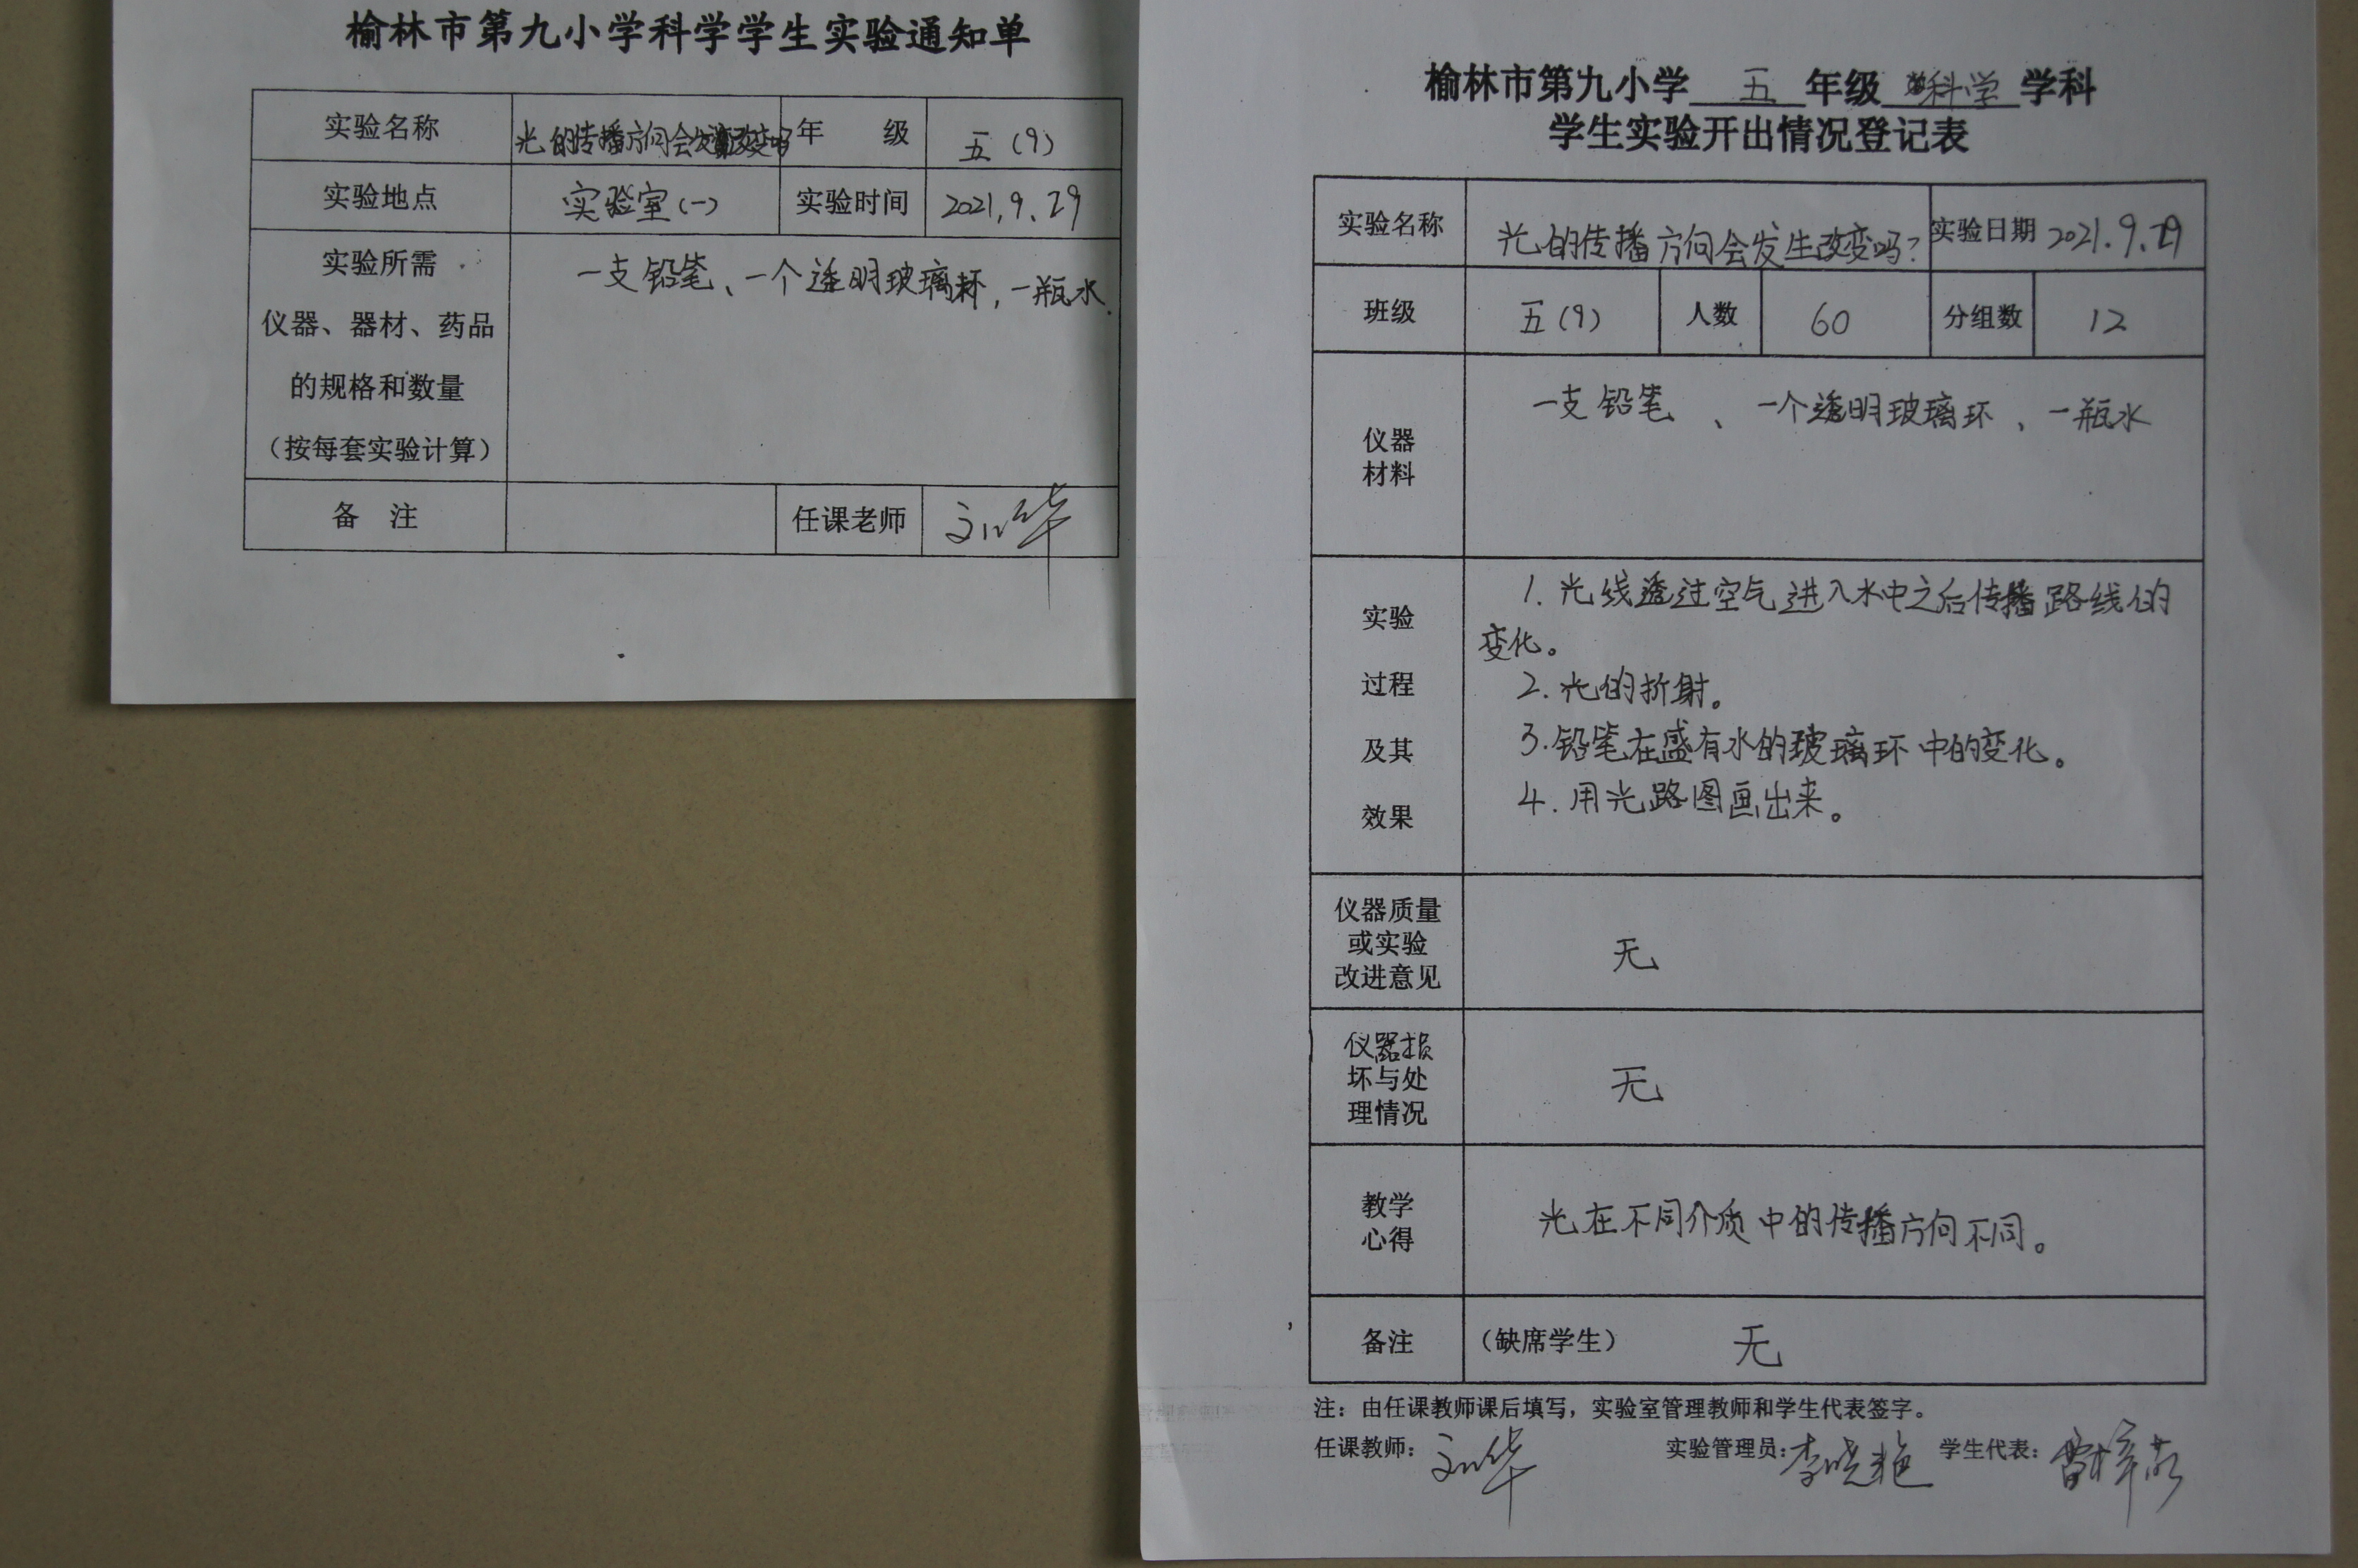 榆林市第九小学科学学生实验通知单
实验名称 光的传播方向会发生改变吗 年 级 五(9)
实验地点 实验室(一) 实验时间 2021.9.29
实验所需
仪器、器材、药品
的规格和数量
(按每套实验计算)
一支铅笔、一个透明玻璃杯,一瓶水.
备 注 任课老师
榆林市第九小学 五 年级 科学 学科
学生实验开出情况登记表
实验名称 光的传播方向会发生改变吗? 实验日期 2021.9.29
班级 五(9) 人数 60 分组数 12
仪器
材料
一支铅笔、一个透明玻璃环、一瓶水
实验
过程
及其
效果
1.光线透过空气进入水中之后传播路线的
变化。
2.光的折射。
3.铅笔在盛有水的玻璃环中的变化。
4.用光路图画出来。
仪器质量
或实验
改进意见
无
仪器损
坏与处
理情况
无
教学
心得
光在不同介质中的传播方向不同。
备注 (缺席学生) 无
注:由任课教师课后填写,实验室管理教师和学生代表签字。
任课教师: 实验管理员:李晓艳 学生代表: